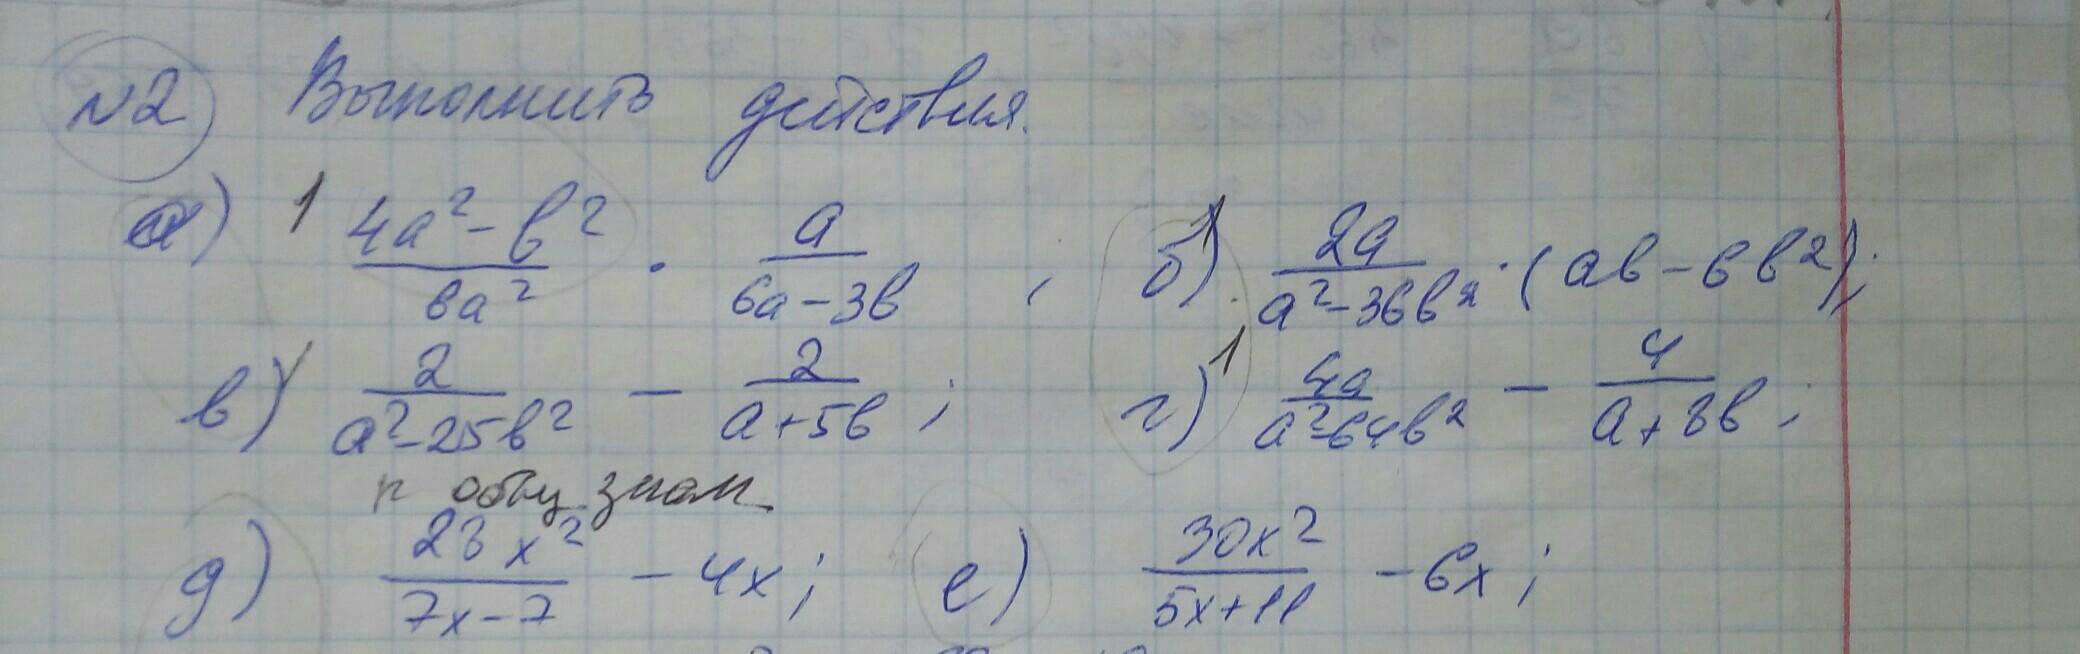 №2 Выполнить действия.
а) 1 (4a² - b²)/(6a²) · a/(6a - 3b) , б) 1 2a/(a² - 36b²) · (ab - 6b²);
в) 2/(a² - 25b²) - 2/(a + 5b) ; г) 1 4a/(a² - 64b²) - 4/(a + 8b) ;
п общ знам.
д) 28x²/(7x - 7) - 4x ; е) 30x²/(5x + 11) - 6x ;